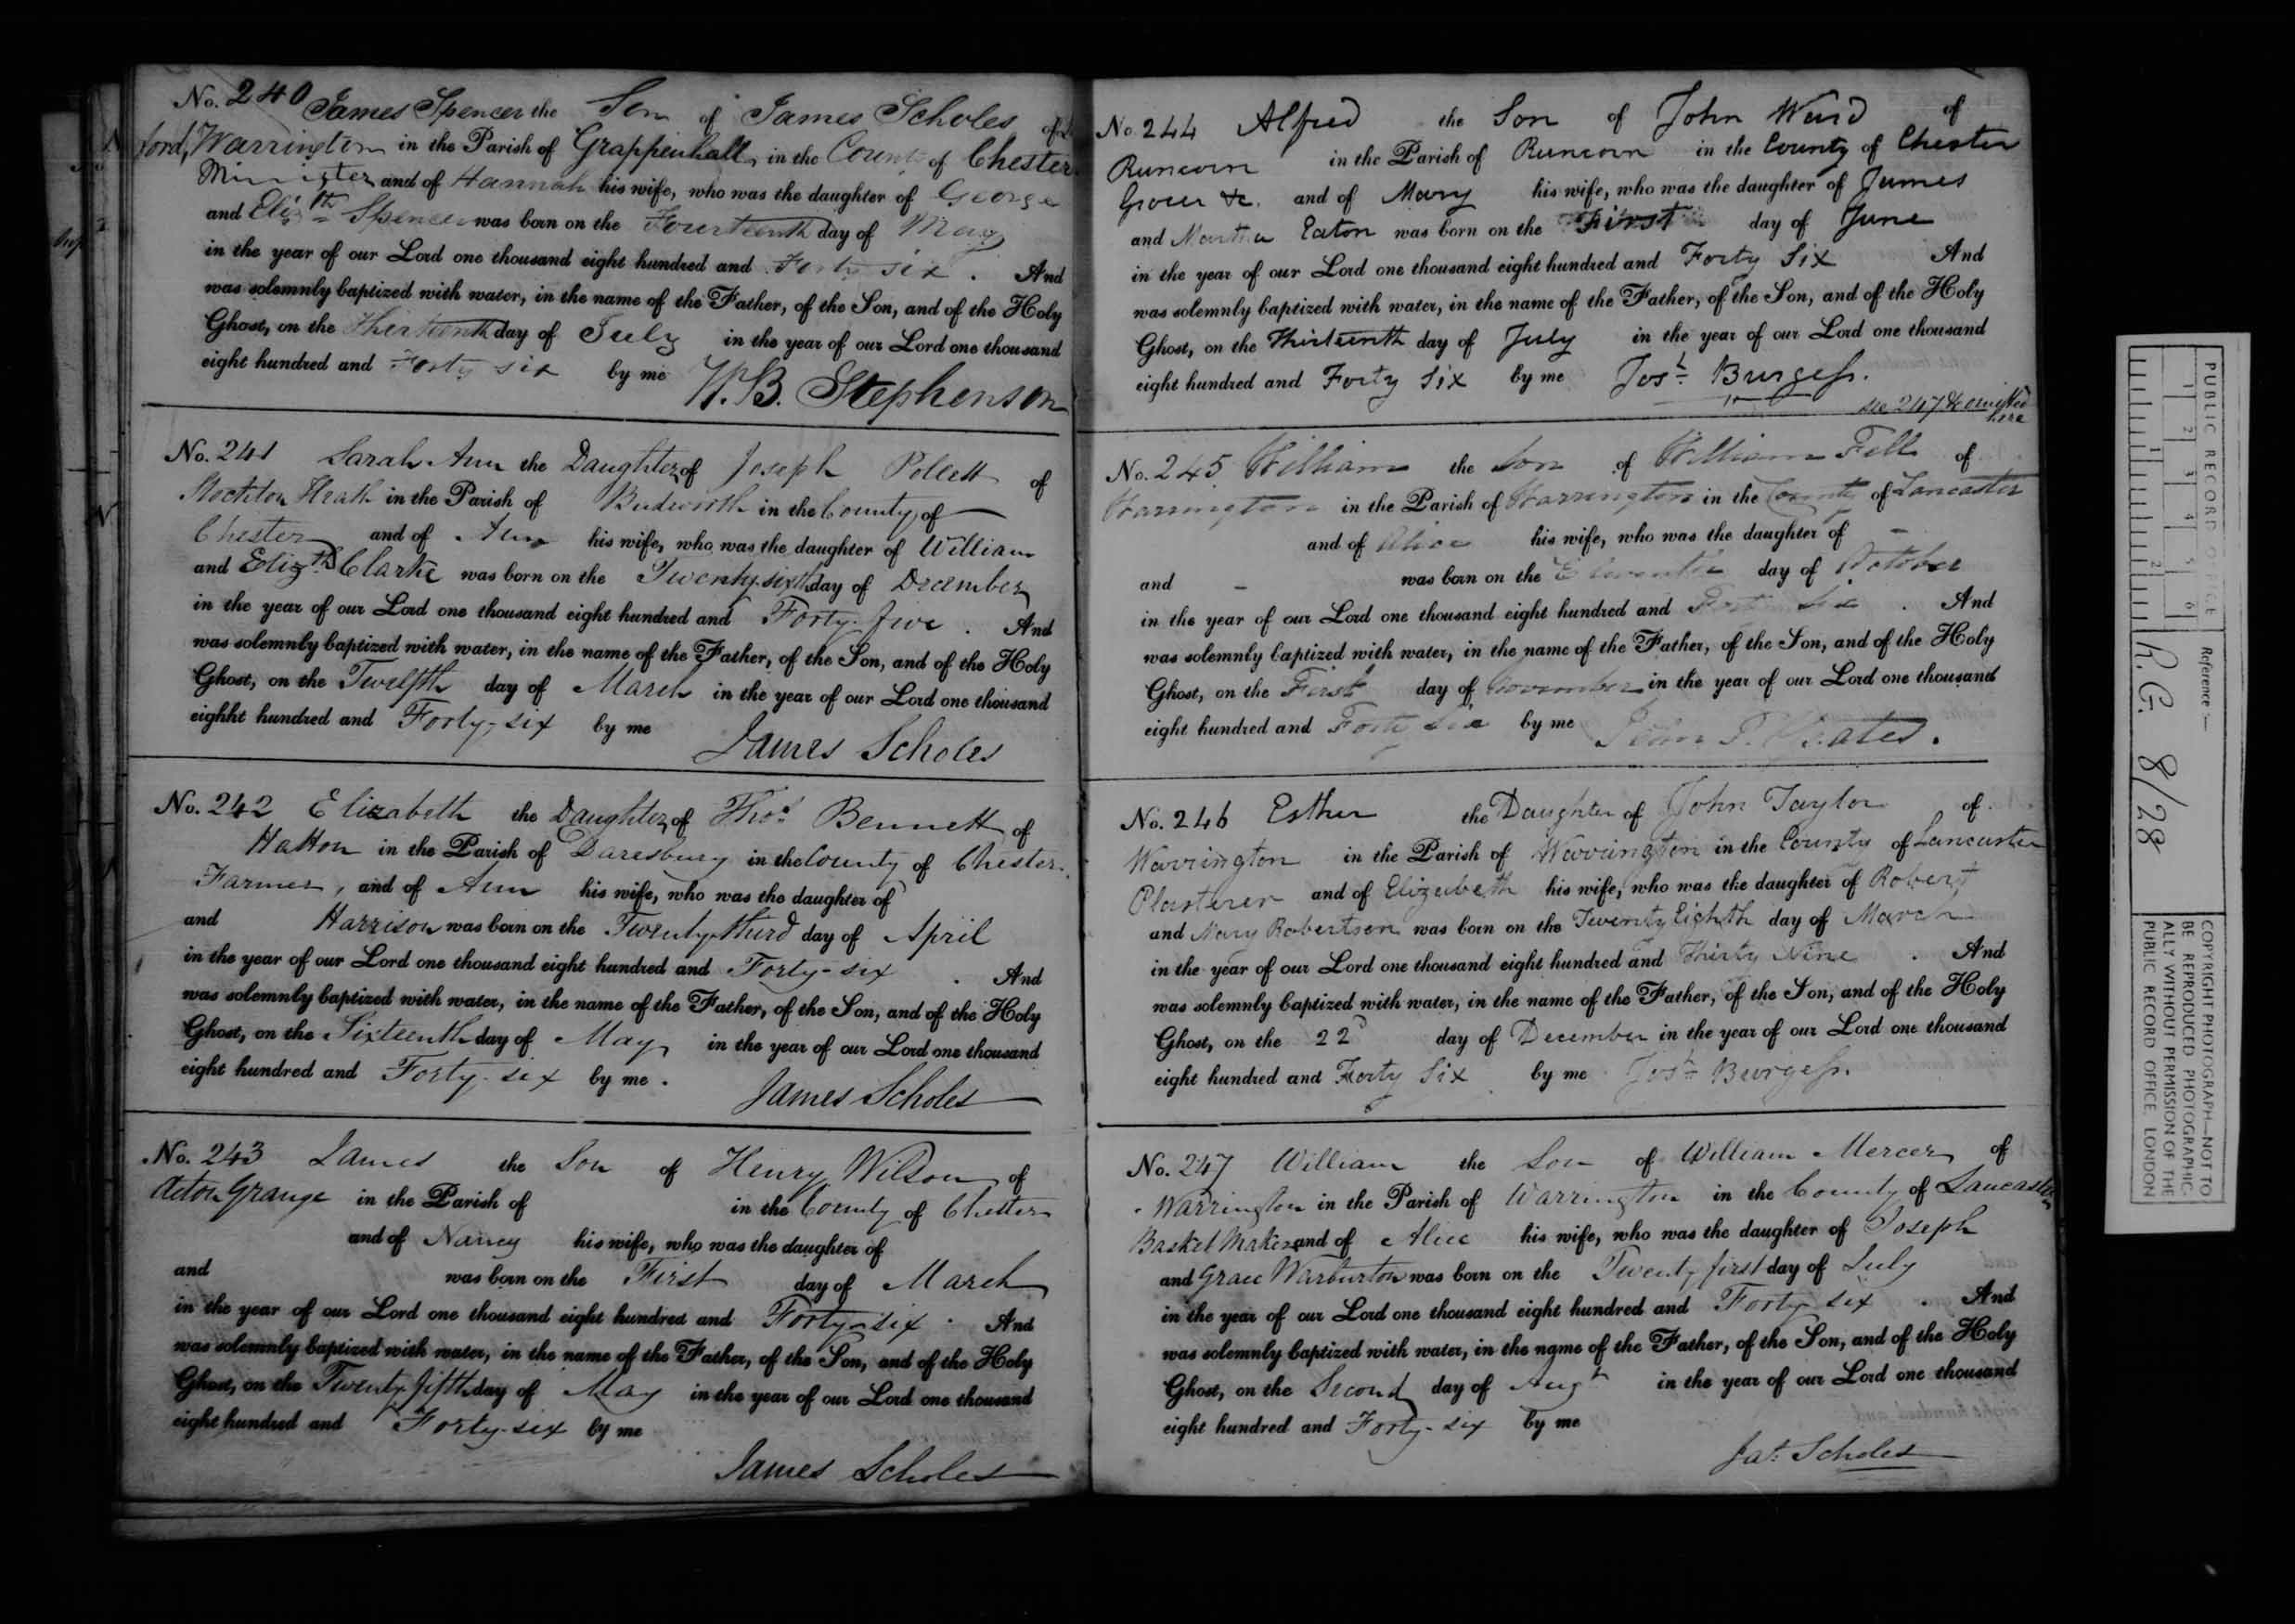 No. 240 James Spencer the Son of James Scholes of
ford, Warrington in the Parish of Grappenhall, in the County of Chester
Minister and of Hannah his wife, who was the daughter of George
and Elizth Spencer was born on the Fourteenth day of May
in the year of our Lord one thousand eight hundred and Forty six. And
was solemnly baptized with water, in the name of the Father, of the Son, and of the Holy
Ghost, on the Thirteenth day of July in the year of our Lord one thousand
eight hundred and Forty six by me
W.B. Stephenson
No. 241 Sarah Ann the Daughter of Joseph Pollett of
Stockton Heath in the Parish of Budworth in the County of
Chester and of Ann his wife, who was the daughter of William
and Elizth Clarke was born on the Twenty sixth day of December
in the year of our Lord one thousand eight hundred and Forty five. And
was solemnly baptized with water, in the name of the Father, of the Son, and of the Holy
Ghost, on the Twelfth day of March in the year of our Lord one thousand
eighht hundred and Forty-six by me
James Scholes
No. 242 Elizabeth the Daughter of Thos. Bennett of
Hatton in the Parish of Daresbury in the County of Chester.
Farmer, and of Ann his wife, who was the daughter of
and Harrison was born on the Twenty third day of April
in the year of our Lord one thousand eight hundred and Forty-six. And
was solemnly baptized with water, in the name of the Father, of the Son, and of the Holy
Ghost, on the Sixteenth day of May in the year of our Lord one thousand
eight hundred and Forty-six by me.
James Scholes
No. 243 James the Son of Henry Wilson of
Acton Grange in the Parish of in the County of Chester
and of Nancy his wife, who was the daughter of
and was born on the First day of March
in the year of our Lord one thousand eight hundred and Forty-six. And
was solemnly baptized with water, in the name of the Father, of the Son, and of the Holy
Ghost, on the Twenty fifth day of May in the year of our Lord one thousand
eight hundred and Forty-six by me
James Scholes
No. 244 Alfred the Son of John Ward of
Runcorn in the Parish of Runcorn in the County of Chester
Grocer &c. and of Mary his wife, who was the daughter of James
and Martha Eaton was born on the First day of June
in the year of our Lord one thousand eight hundred and Forty Six And
was solemnly baptized with water, in the name of the Father, of the Son, and of the Holy
Ghost, on the Thirteenth day of July in the year of our Lord one thousand
eight hundred and Forty Six by me Josh Burgess.
see 247 & omitted
here
No. 245 William the Son of William Fell of
Warrington in the Parish of Warrington in the County of Lancaster
and of Alice his wife, who was the daughter of -
and - was born on the Eleventh day of October
in the year of our Lord one thousand eight hundred and Forty Six. And
was solemnly baptized with water, in the name of the Father, of the Son, and of the Holy
Ghost, on the First day of November in the year of our Lord one thousand
eight hundred and Forty six by me John P. Yeates.
No. 246 Esther the Daughter of John Taylor of
Warrington in the Parish of Warrington in the County of Lancaster
Plasterer and of Elizabeth his wife, who was the daughter of Robert
and Mary Robertson was born on the Twenty Eighth day of March
in the year of our Lord one thousand eight hundred and Thirty Nine. And
was solemnly baptized with water, in the name of the Father, of the Son, and of the Holy
Ghost, on the 22d day of December in the year of our Lord one thousand
eight hundred and Forty Six by me Josh Burgess.
No. 247 William the Son of William Mercer of
Warrington in the Parish of Warrington in the County of Lancaster
Basket Maker and of Alice his wife, who was the daughter of Joseph
and Grace Warburton was born on the Twenty first day of July
in the year of our Lord one thousand eight hundred and Forty-six. And
was solemnly baptized with water, in the name of the Father, of the Son, and of the Holy
Ghost, on the Second day of Augt in the year of our Lord one thousand
eight hundred and Forty-six by me
Jas. Scholes
PUBLIC RECORD OFFICE
1 2 3 4 5 6
1 2
Reference:-
R.G. 8/28
COPYRIGHT PHOTOGRAPH—NOT TO
BE REPRODUCED PHOTOGRAPHIC-
ALLY WITHOUT PERMISSION OF THE
PUBLIC RECORD OFFICE, LONDON